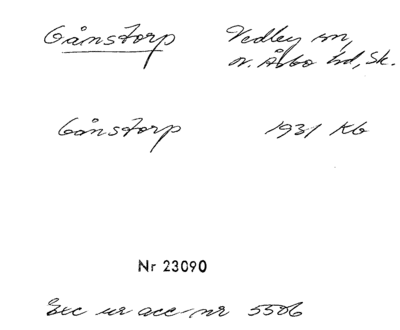 Gånstorp Vedby sn,
n. Åsbo hd, Sk.
Gånstorp 1931 KG
Nr 23090
Exc ur acc nr 5506